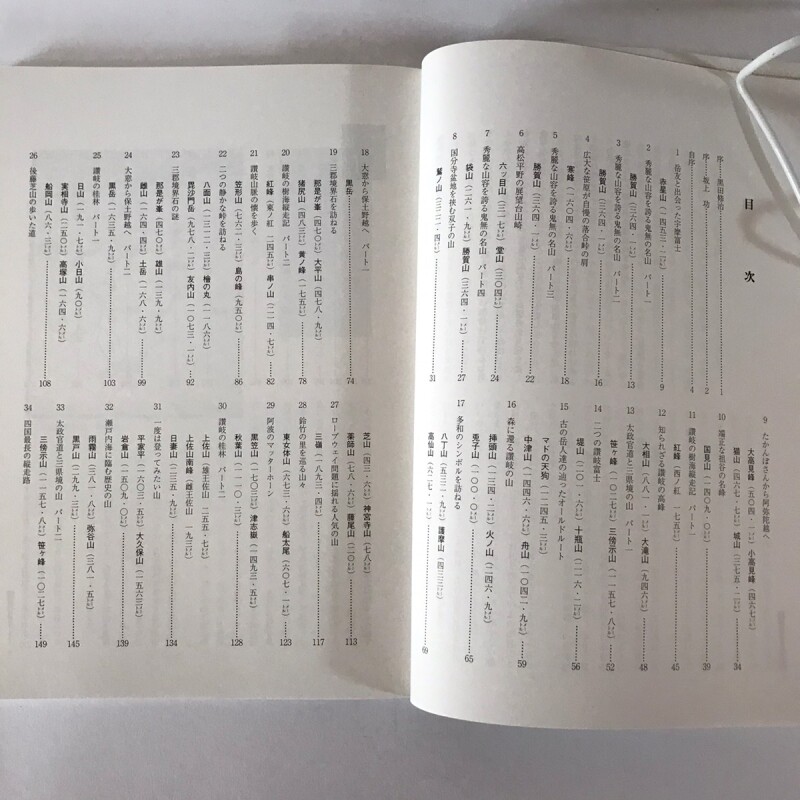 目次
序……黒田修治
序……坂上 功
自序……4
1 岳友と出会った宇摩富士
赤星山（一四五三・二㍍）……9
2 秀麗な山容を誇る鬼無の名山 パート一
勝賀山（三六四・一㍍）……12
3 秀麗な山容を誇る鬼無の名山 パート二
勝賀山（三六四・一㍍）……13
4 広大な笹原が自慢の落合峠の肩
寒峰（一六〇四・六㍍）……16
5 秀麗な山容を誇る鬼無の名山 パート三
勝賀山（三六四・一㍍）……18
6 高松平野の展望台山崎
六ッ目山（三一七㍍） 堂山（三〇四㍍）……24
7 秀麗な山容を誇る鬼無の名山 パート四
袋山（二六一㍍） 勝賀山（三六四・一㍍）……27
8 国分寺盆地を挟む双子の山
鷲ノ山（三二二・四㍍）……31
9 たかんぼさんから阿弥陀越へ
大高見峰（五〇四・一㍍） 小高見峰
猫山（四六七・七㍍） 城山（三七五・二㍍）……34
10 端正な祖谷の名峰
国見山（一四〇九・〇㍍）……39
11 讃岐の樹海縦走記 パート一
紅峰（西ノ紅 一一五㍍）……45
12 知られざる讃岐の高峰
大相山（八八一・一㍍） 大滝山（九四六㍍）……48
13 太政官道と三県境の山 パート一
笹ヶ峰（一〇二七㍍） 三傍示山（一一五七・八㍍）……52
14 二つの讃岐富士
堤山（二〇一・六㍍） 十瓶山（二一六・二㍍）……56
15 古の岳人達の辿ったオールドルート
マドの天狗（一二四五・三㍍）
中津山（一四四六・六㍍） 舟山（一〇四二・九㍍）……59
16 森に還る讃岐の山
挿頭山（一三四・二㍍） 火ノ山（二四六・九㍍）
兎子山（一〇〇・〇㍍）……65
17 多和のシンボルを訪ねる
八丁山（五三二・九㍍） 護摩山（四三三㍍）
高仙山（六二七・一㍍）……69
18 大窓から保土野越へ パート一
黒岳……74
19 三郡境界石を訪ねる
那是が峯（四七〇㍍） 大平山（四七八・九㍍）……78
20 讃岐の樹海縦走記 パート二
猪尻山（四八三㍍） 黄ノ峰（一七五㍍）
紅峰（東ノ紅 二四五㍍） 串ノ山（二一四・九㍍）……82
21 讃岐山脈の懐を歩く
笠形山（七六二・三㍍） 島の峰（九五〇㍍）……86
22 二つの静かな峠を訪ねる
八面山（一三一二・三㍍） 檜の丸（一一八六㍍）
毘沙門岳（九七八・二㍍） 友内山（一〇七三・一㍍）……92
23 三郡境界石の謎
那是が峯（四七〇㍍） 雄山（一三九・九㍍）
雌山（一六四・四㍍） 土岳（一六八・六㍍）……99
24 大窓から保土野越へ パート二
黒岳（一六三五・九㍍）……103
25 讃岐の桂林 パート一
日山（一九一・七㍍） 小日山（九〇㍍）
実相寺山（二五〇㍍） 高塚山（一六四・六㍍）
船岡山（八六・三㍍）……108
26 後藤芝山の歩いた道
芝山（四三・六㍍） 神宮寺山（七八㍍）
薬師山（七八・六㍍） 藤尾山（二〇㍍）……113
27 ロープウェイ問題に揺れる人気の山
三嶺（一八九三・四㍍）……117
28 鈴竹の里を巡る山々
東女体山（六七三・六㍍） 船太尾（六〇七・一㍍）……123
29 阿波のマッターホーン
黒笠山（一七〇三㍍） 津志嶽（一四九三・五㍍）
秋葉山（一一一〇・三㍍）……128
30 讃岐の桂林 パート二
上佐山（雄王佐山 二五五・七㍍）
上佐山南峰（雌王佐山 一九三㍍）
日妻山（二三五・九㍍）……134
31 一度は登ってみたい山
平家平（一六〇三・五㍍） 大久保山（一五六三㍍）
岩倉山（一五〇九・〇㍍）……139
32 瀬戸内海に臨む歴史の山
雨霧山（三八八・八㍍） 弥谷山（三八一・五㍍）
黒戸山（一九九・三㍍）……145
33 太政官道と三県境の山 パート二
三傍示山（一一五七・八㍍） 笹ヶ峰（一〇二七㍍）……149
34 四国最長の縦走路